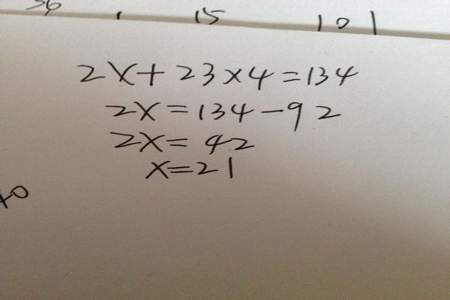 36 , 15 101
2X+23×4=134
2X=134-92
2X=42
X=21